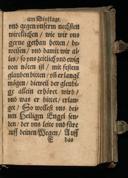 am Dinstage.
und gegen unserm nechsten
würcklichen / wie wir uns
gerne gethan hetten / be-
weisen / und damit wir al-
les / so uns zeitlich und ewig
von nöten ist / mit festem
glauben bitten / es erlangen
mögen / dieweil der gläubi-
ge allein erhöret wird /
und was er bittet / erlan-
ge / So wollest uns dei-
nen Heiligen Engel sen-
den / der uns leite und füre
auff deinen Wegen / Auff
das